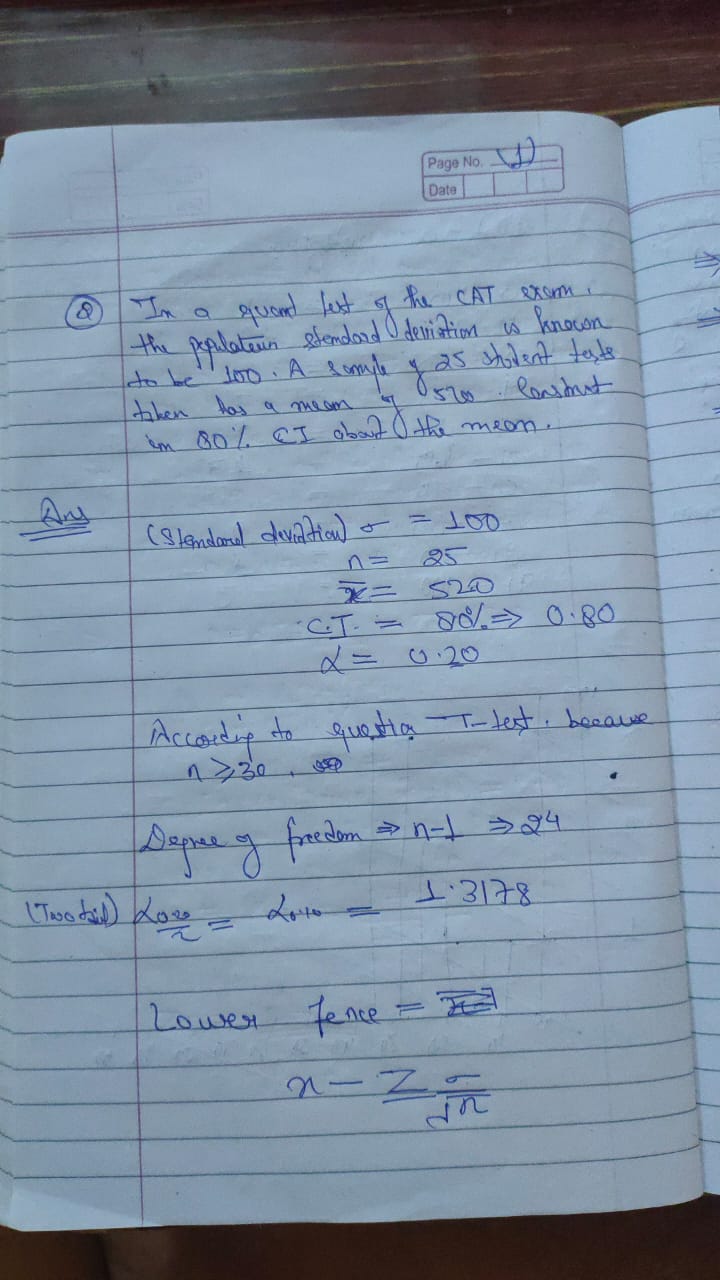 Page No. (1)
Date
8 In a quant test of the CAT exam.
the population standard deviation is known
to be 100. A sample of 25 student tests
taken has a mean of 520. Construct
an 80% CI about the mean.
Ans
(Standard deviation) σ = 100
n = 25
x̄ = 520
C.I. = 80% ⇒ 0.80
α = 0.20
According to question T-test, because
n ≥ 30.
Degree of freedom ⇒ n-1 ⇒ 24
(Two tail) α0.20/2 = α0.10 = 1.3178
Lower fence =
x - Z σ/√n